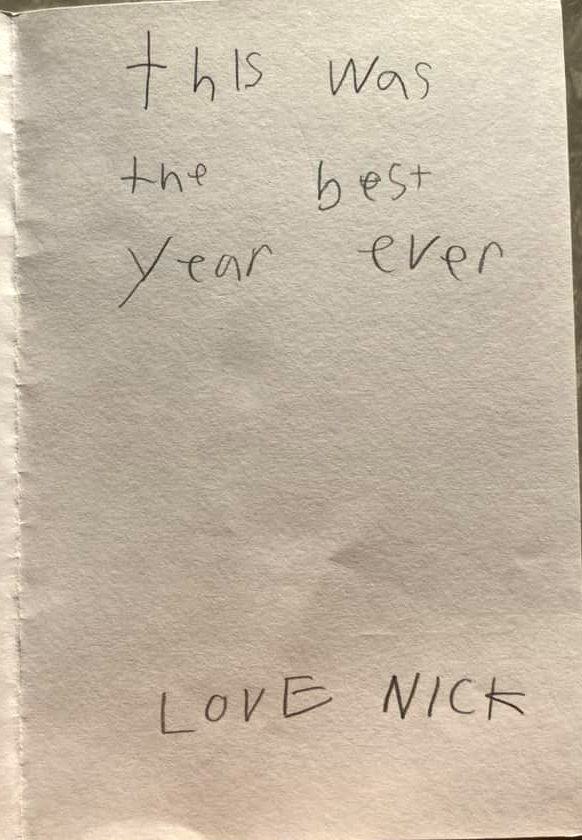 this was
the best
year ever
LOVE NICK